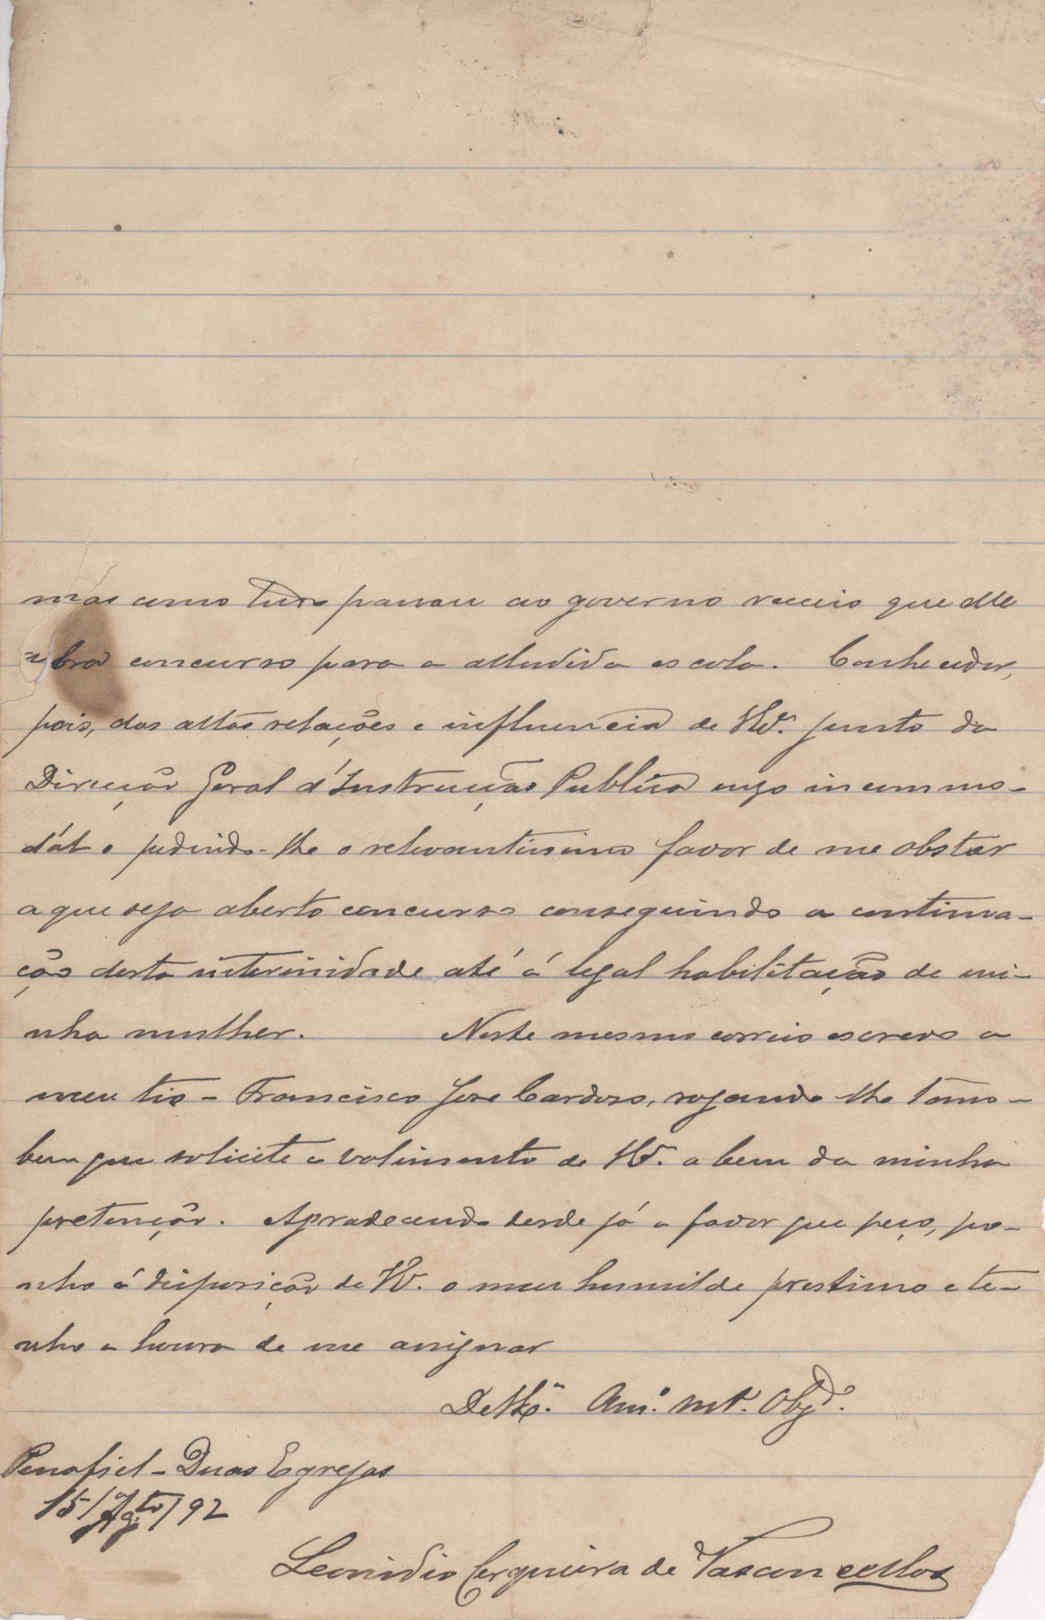 mas como tudo passou ao governo receio que elle
abra concurso para a alludida escola. Conhecedor,
pois, das altas relações e influencia de V. junto da
Direcção Geral d'Instrucção Publica ouso incommo-
dál-o pedindo-lhe o relevantissimo favor de me obstar
a que seja aberto concurso conseguindo a continua-
ção desta interinidade até á legal habilitação de mi-
nha mulher. Neste mesmo correio escrevo a
meu tio - Francisco José Cardoso, rogando-lhe tam-
bem que solicite o valimento de V. a bem da minha
pretenção. Agradecendo desde já o favor que peço, po-
nho á disposição de V. o meu humilde prestimo e te-
nho a honra de me assignar
De Am.º Mt.º Obgd.º
Penafiel - Duas Egrejas
15/Agto/92
Leonidio Cerqueira de Vasconcellos